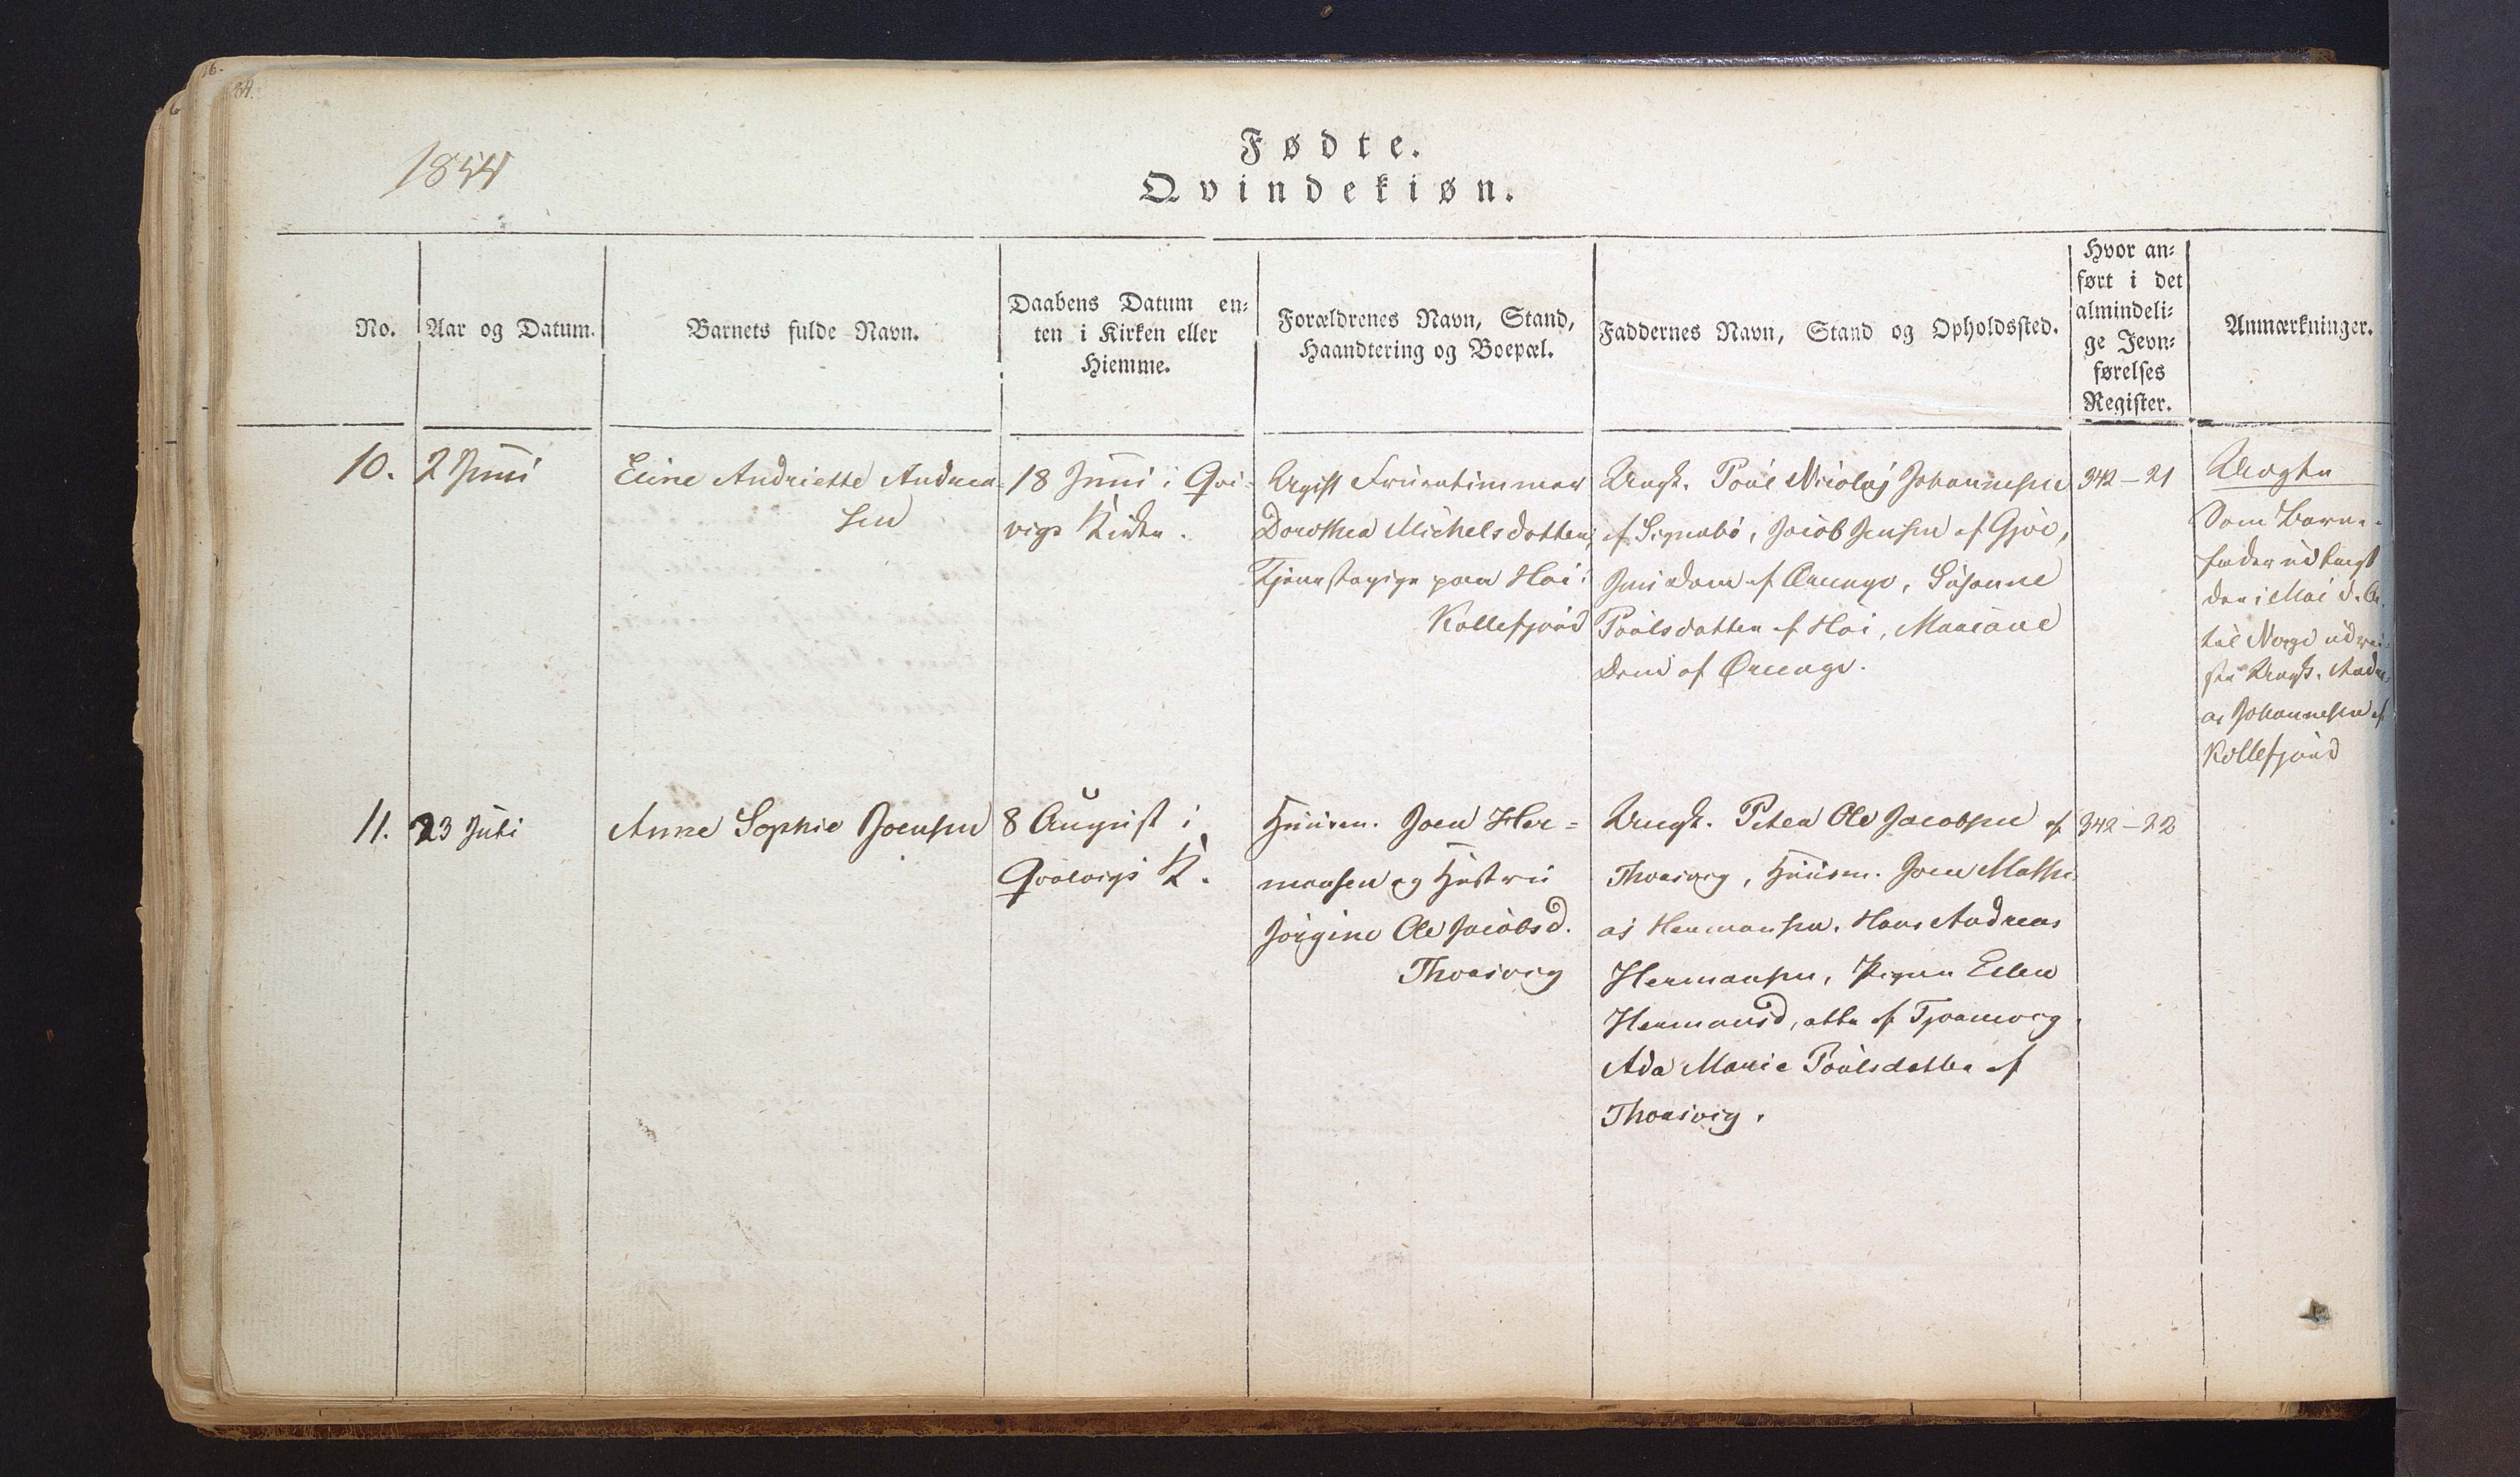 84.
1854
Fødte.
Qvindekiøn.
No.
Aar og Datum.
Barnets fulde Navn.
Daabens Datum en=
ten i Kirken eller
Hiemme.
Forældrenes Navn, Stand,
Haandtering og Boepæl.
Faddernes Navn, Stand og Opholdssted.
Hvor an=
ført i det
almindeli=
ge Jevn=
førelses
Register.
Anmærkninger.
10.
2 Juni
Eline Andriette Andrea-
sen
18 Juni i Qvi-
vigs Kirke.
Ugift Fruentimmer
Dorothea Michelsdatter,
Tjenestepige paa Høi i
Kollefjord
Ungk. Poul Nicolaj Johannesen
af Signabø, Jacob Jensen af Gjov,
af Ørenge, Susanne
Poulsdatter af Høi,
af Ørenge.
342-21
Uægte
Som Barne-
fader udlagt
den i Mai d. A.
til Norge udrei-
ste Ungk. Andre-
as Johannesen af
Kollefjord
11.
23 Juli
Anne Sophie Joensen
8 August i
Qvalvigs K.
Huusm. Joen Her=
mansen og Hustru
Jørgine Ole Jacobsd.
Thorsvig
Ungk. Peter Ole Jacobsen af
Thorsvig, Huusm. Joen Mathi-
as Hermansen, Hans Andreas
Hermansen, Pigen Ellen
Hermansd, alle af Tjørnevig
Ada Marie Poulsdatter af
Thorsvig.
342-22